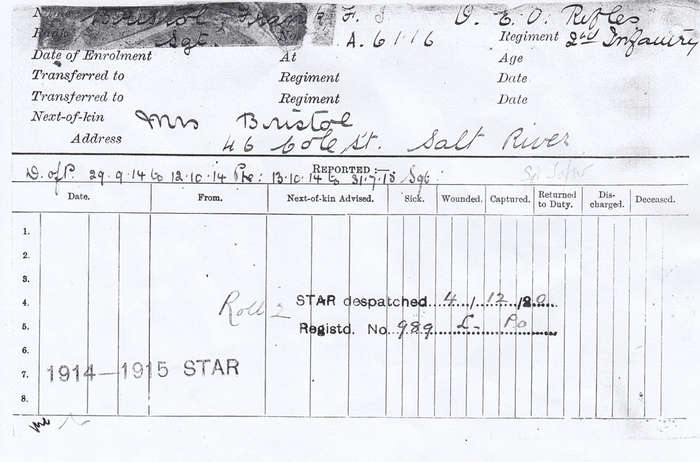 Name Bristol, Frank F. J. D. E. O. Rifles
Rank Sgt. No. A.6116 Regiment 2nd Infantry
Date of Enrolment At Age
Transferred to Regiment Date
Transferred to Regiment Date
Next-of-kin Mrs Bristol
Address 46 Cole St. Salt River
REPORTED:—
D. of P. 29.9.14 to 12.10.14 Pte: 13.10.14 to 31.7.15 Sgt:
Date. From. Next-of-kin Advised. Sick. Wounded. Captured. Returned to Duty. Dis-charged. Deceased.
1.
2.
3.
4. Roll 2 STAR despatched 4/12/20
5. Registd. No. 989 L. Po
6.
7. 1914—1915 STAR
8.